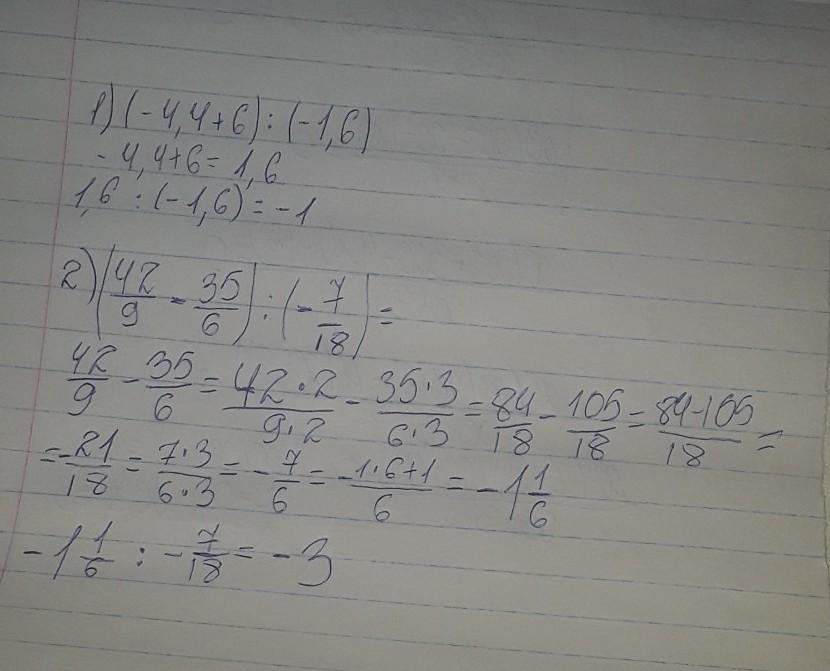 1) (-4,4+6) : (-1,6)
-4,4+6 = 1,6
1,6 : (-1,6) = -1
2) (42/9 - 35/6) : (-7/18) =
42/9 - 35/6 = 42·2/9·2 - 35·3/6·3 = 84/18 - 105/18 = 84-105/18 =
= -21/18 = 7·3/6·3 = -7/6 = -1·6+1/6 = -1 1/6
-1 1/6 : -7/18 = -3